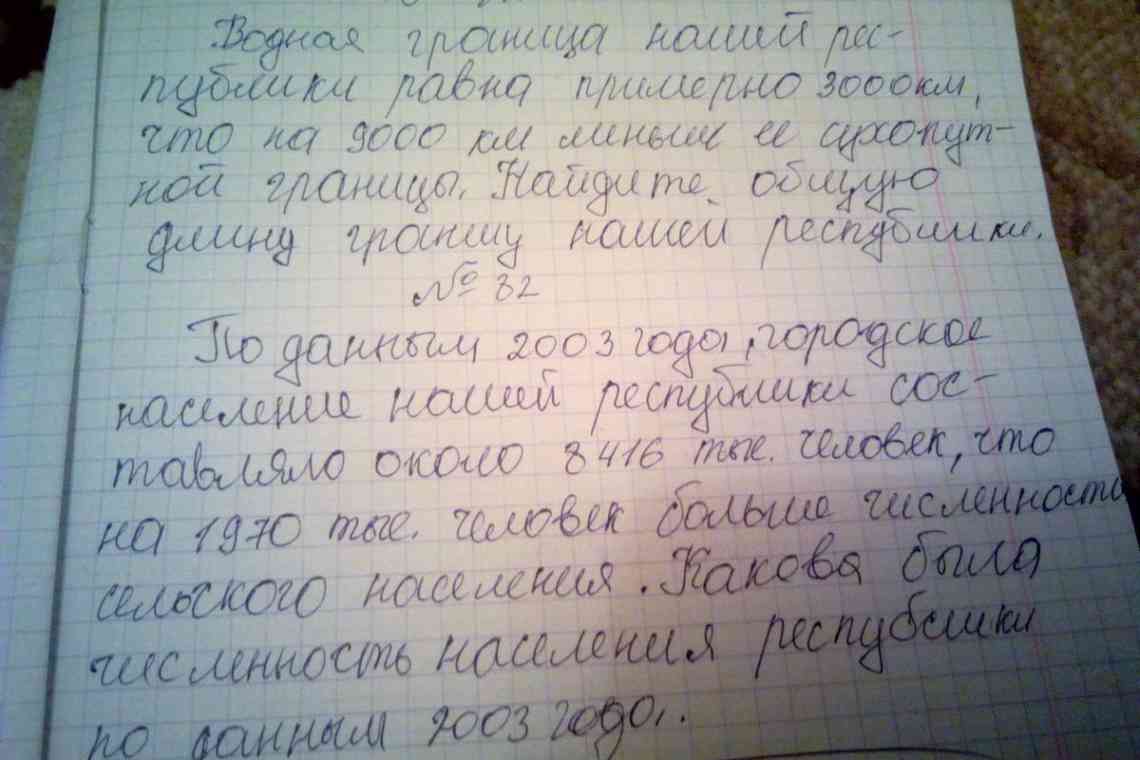 Водная граница нашей рес-
публики равна примерно 3000км,
что на 9000 км меньше ее сухопут-
ной границы. Найдите общую
длину границу нашей республики.
№ 32
По данным 2003 года, городское
население нашей республики сос-
тавляло около 8416 тыс. человек, что
на 1970 тыс. человек больше численности
сельского населения. Какова была
численность населения республики
по данным 2003 года.